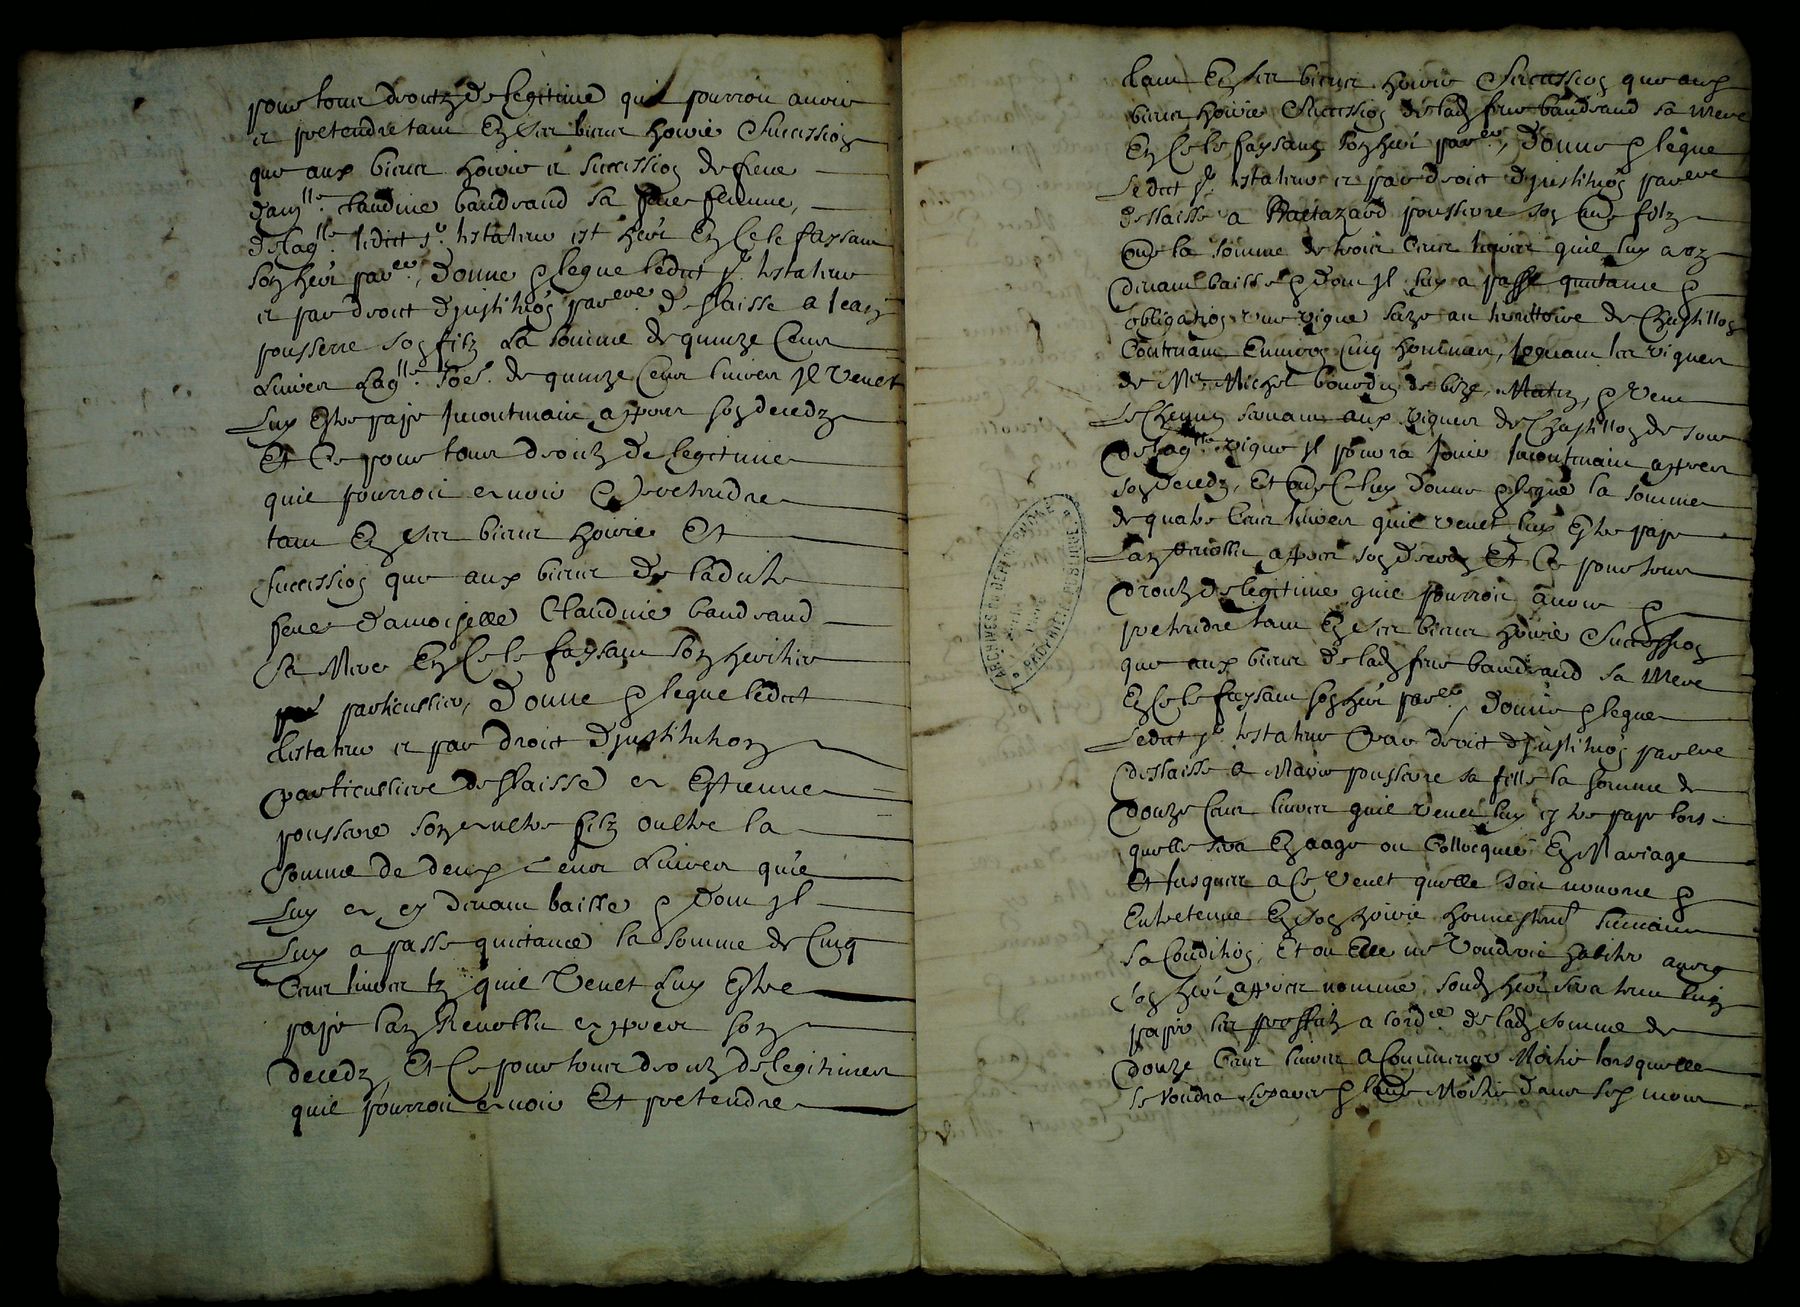 pour tous droictz de legitime quil pourroit avoir
et pretendre tant En ses biens hoirie Succession
que aux biens hoirie et succession de feue
dam.lle Claudine baudrand sa femme,
delaq.lle ledict s.r testateur est heõr En Ce le faisant
son heõr par.er, donne & legue ledict s.r testateur
et par droict dinstituõn par.ere deslaisse a Jean
pousserre son filz La somme de quinze Cens
Livres Laq.lle so.e de quinze Cens livres Jl veult
Luy Estre paye Incontinant appres son decedz
Et Ce pour tous droictz de legitime
quil pourroit avoir & pretendre
tant En ses biens hoirie Et
succession que aux biens de ladicte
feue damoiselle Claudine baudrand
sa Mere En Ce le faysant son heritier
particullier, donne & legue ledict
testateur et par droict dinstitution
particulliere deslaisse a Estienne
poussere son aultre filz oultre la
somme de deux Cens Livres quil
Luy a cy devant baillé & dont Jl
Luy a passé quictance la somme de Cinq
Cens livres tz quil Veult Luy Estre
payé Lan Revollu appres son
decedz, Et Ce pour tous droictz de legitimes
quil pourroit avoir Et pretendre
tant En ses biens hoirie Succession que aux
biens hoirie Succession de lad. feue baudrand sa Mere
En Ce le faysant son heõr par.er, donne & legue
Ledict s.r testateur et par droict dinstituõn par.ere
deslaisse a Baltazard poussere son filz
oultre la somme de trois Cens livres quil luy a cy
devant baillé & dont Jl luy a passé quictance &
obligation une vigne size au territtoire de Chastillon
Contenant Environ Cinq hommées, Joignant les vignes
de M.e Michel bourdin de bize, Matin, & Vent
Le Chemin servant aux vignes de Chastillon de soir
de laq.lle vigne Jl pourra Jouir Incontinant appres
son decedz, Et oultre Ce luy donne & legue la somme
de quatre Cens livres quil veult luy Estre payé
Lan revollu appres son decedz Et Ce pour tous
droictz de legitime quil pourroit avoir &
pretendre tant En ses biens hoirie Succession
que aux biens de lad. feue baudrand sa Mere
En Ce le faysant son heõr par.er, donne & legue
Ledict s.r testateur & par droict dinstituõn par.ere
deslaisse a Marie poussere sa fille la somme de
douze Cens livres quil veult luy estre paye lors
quelle sera En aage ou Collocquee En Mariage
Et Jusques a Ce Veult quelle soit nourrie &
Entretenue En son hoirie honnestem.t suivant
sa Condition, Et ou Elle ne Voudroit habiter avecq
son heõr appres nommé, sond. heõr sera tenu luy
payer les proffitz a lord.re de lad. somme de
douze Cens livres a Commencer lorsquelle
se voudra separer & dans six mois